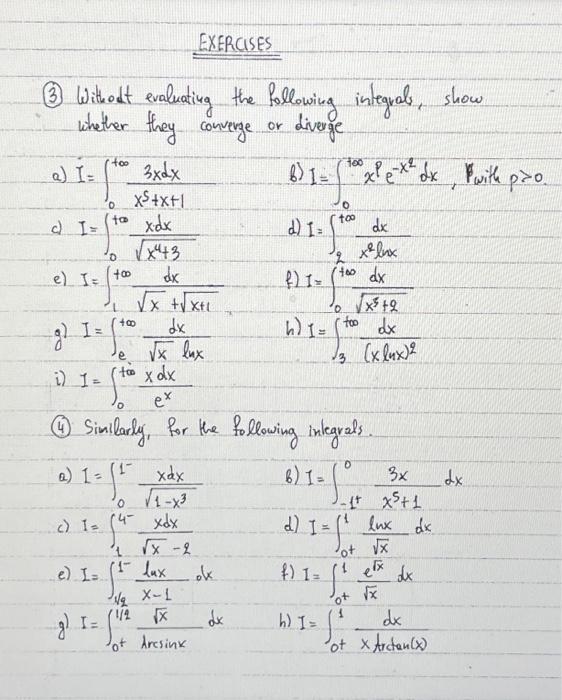 EXERCISES
③ Without evaluating the following integrals, show
whether they converge or diverge
a) I = ∫₀^{+∞} 3xdx / (x⁵+x+1)    b) I = ∫₀^{+∞} x^p e^{-x²} dx, with p>0.
c) I = ∫₀^{+∞} xdx / √(x⁴+3)    d) I = ∫₂^{+∞} dx / (x² lnx)
e) I = ∫₁^{+∞} dx / (√x + √(x+1))    f) I = ∫₀^{+∞} dx / √(x⁵+2)
g) I = ∫ₑ^{+∞} dx / (√x lnx)    h) I = ∫₃^{+∞} dx / (x lnx)²
i) I = ∫₀^{+∞} x dx / e^x
④ Similarly, for the following integrals.
a) I = ∫₀^{1⁻} xdx / √(1-x³)    b) I = ∫_{-1⁺}^{0} 3x / (x⁵+1) dx
c) I = ∫₁^{4⁻} xdx / (√x - 2)    d) I = ∫_{0⁺}^{1} lnx / √x dx
e) I = ∫_{1/2}^{1⁻} lnx / (x-1) dx    f) I = ∫_{0⁺}^{1} e^{√x} / √x dx
g) I = ∫_{0⁺}^{1/2} √x / Arcsinx dx    h) I = ∫_{0⁺}^{1} dx / (x Arctan(x))